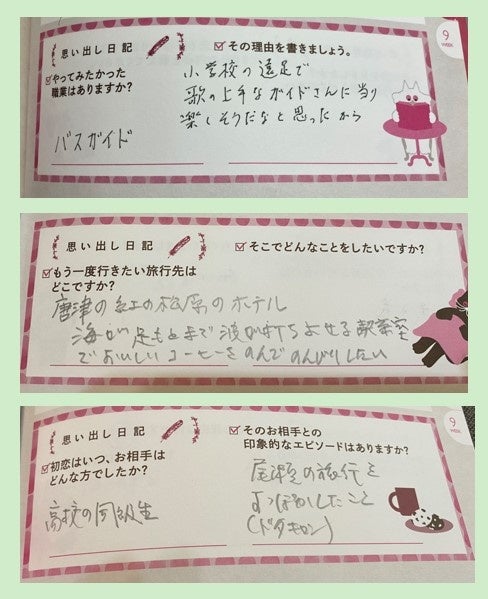 思い出し日記
☑やってみたかった
職業はありますか?
バスガイド
☑その理由を書きましょう。
小学校の遠足で
歌の上手なガイドさんに当り
楽しそうだなと思ったから
9
WEEK
思い出し日記
☑もう一度行きたい旅行先は
どこですか?
☑そこでどんなことをしたいですか?
唐津の虹の松原のホテル
海が足もとまで波が打ちよせる喫茶室
でおいしいコーヒーをのんでのんびりしたい
思い出し日記
☑初恋はいつ、お相手は
どんな方でしたか?
高校の同級生
☑そのお相手との
印象的なエピソードはありますか?
尾瀬の旅行を
すっぽかしたこと
(ドタキャン)
9
WEEK